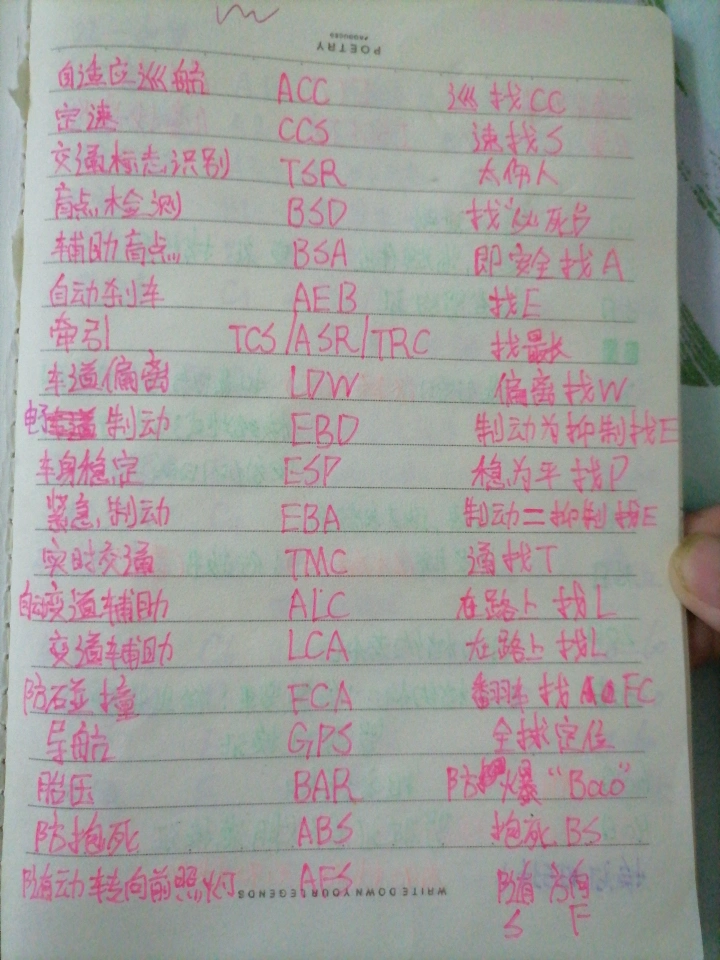 POETRY
PRODUCED
自适应巡航 ACC 巡找CC
定速 CCS 速找S
交通标志识别 TSR 太伤人
盲点检测 BSD 找"必死B
辅助盲点 BSA 即安全找A
自动刹车 AEB 找E
牵引 TCS/ASR/TRC 找最长
车道偏离 LDW 偏离找W
电子 制动 EBD 制动为抑制找E
车身稳定 ESP 稳为平找P
紧急制动 EBA 制动=抑制找E
实时交通 TMC 通找T
自动变道辅助 ALC 在路上找L
变道辅助 LCA 在路上找L
防碰撞 FCA 翻车找 FC
导航 GPS 全球定位
胎压 BAR 防爆"Bao"
防抱死 ABS 抱死BS
随动转向前照灯 AFS 随 方向
S F
WRITE DOWN YOUR LEGENDS